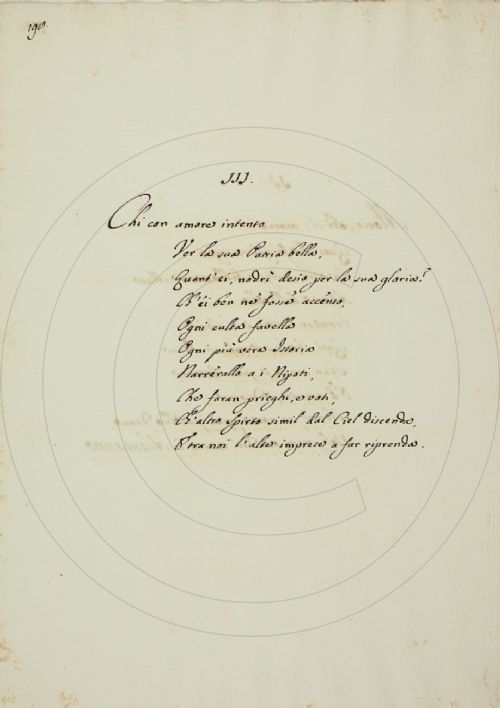 190.
III.
Chi con amore intento
Ver la sua Patria bella,
Quant' ei, nodrì desio per la sua gloria?
Ch'ei ben ne fosse accenso,
Ogni culta favella
Ogni più vera Istoria
Narreralla a i Nipoti,
Che faran prieghi, e voti,
Ch'altro Spirto simil dal Ciel discenda,
E tra noi l'alte imprese a far riprenda.